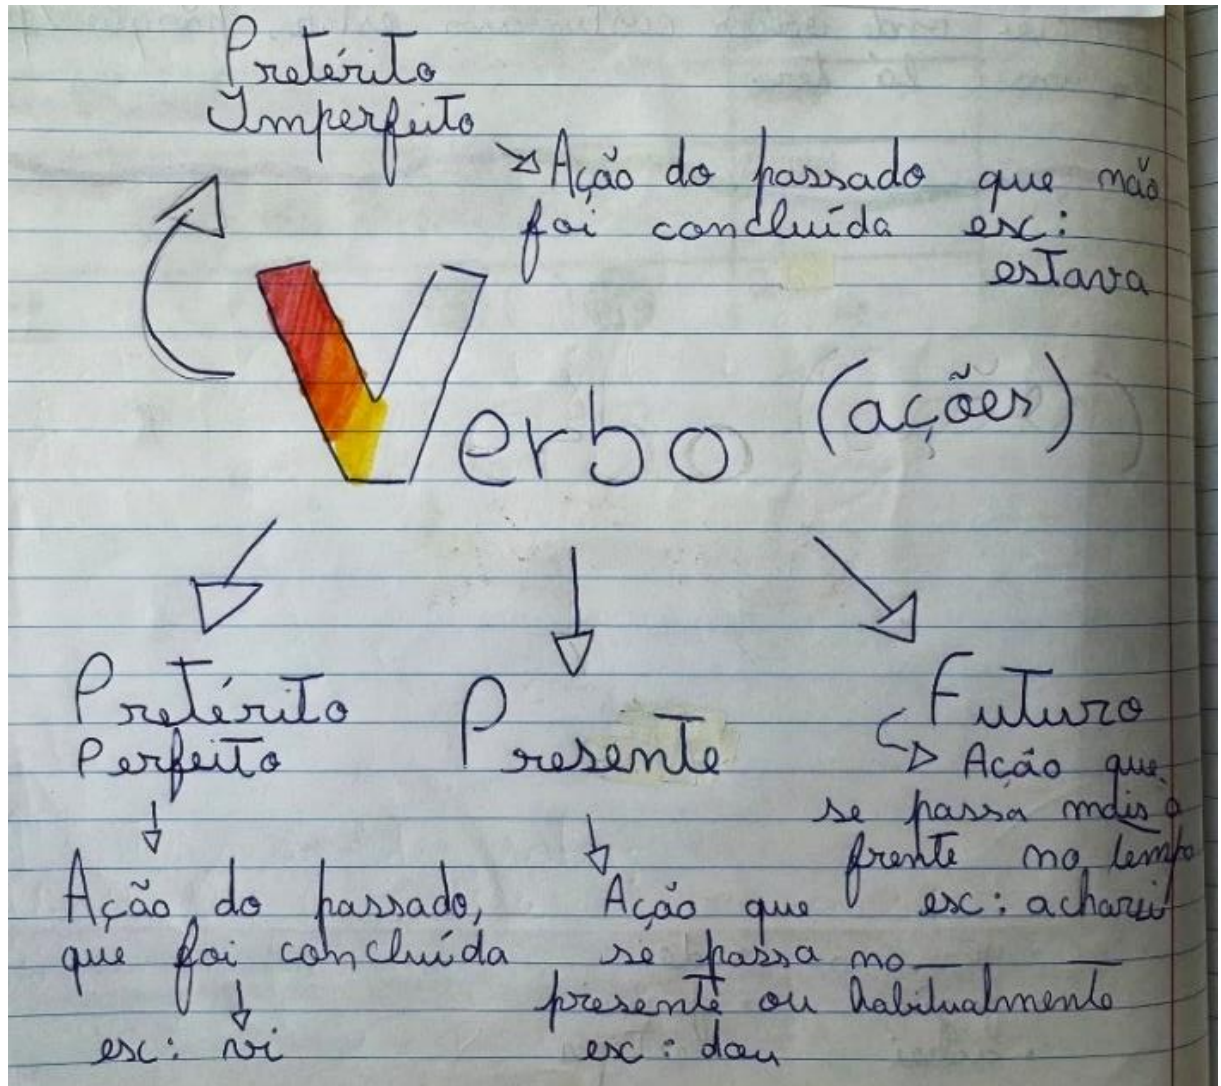 Pretérito
Imperfeito
Ação do passado que não
foi concluída ex:
estava
Verbo (ações)
Pretérito
Perfeito
Ação do passado,
que foi concluída
ex: vi
Presente
Ação que
se passa no
presente ou habitualmente
ex: dou
Futuro
Ação que
se passa mais à
frente no tempo
ex: acharei